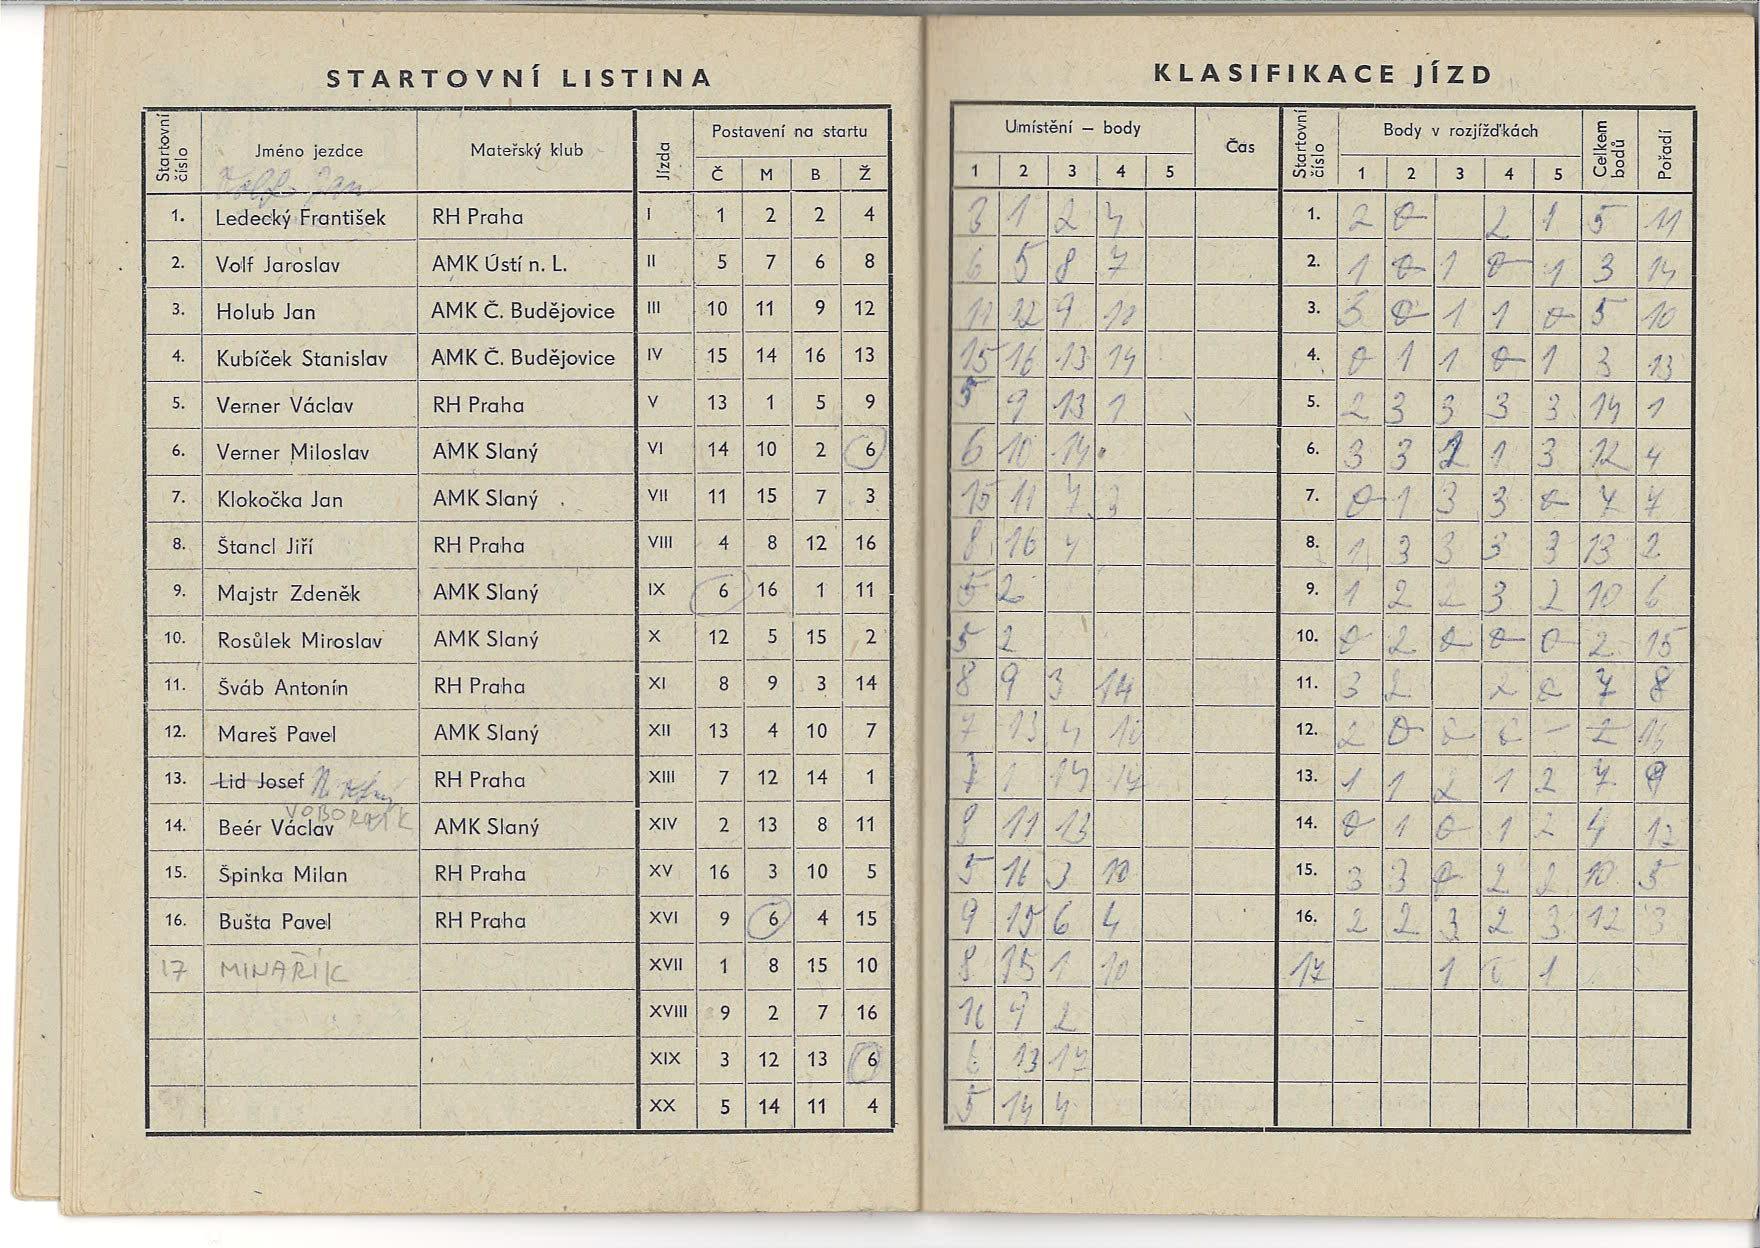 STARTOVNÍ LISTINA
Startovní číslo Jméno jezdce Mateřský klub Jízda Postavení na startu
Č M B Ž
Jan
1. Ledecký František RH Praha I 1 2 2 4
2. Volf Jaroslav AMK Ústí n. L. II 5 7 6 8
3. Holub Jan AMK Č. Budějovice III 10 11 9 12
4. Kubíček Stanislav AMK Č. Budějovice IV 15 14 16 13
5. Verner Václav RH Praha V 13 1 5 9
6. Verner Miloslav AMK Slaný VI 14 10 2 6
7. Klokočka Jan AMK Slaný VII 11 15 7 3
8. Štancl Jiří RH Praha VIII 4 8 12 16
9. Majstr Zdeněk AMK Slaný IX 6 16 1 11
10. Rosůlek Miroslav AMK Slaný X 12 5 15 2
11. Šváb Antonín RH Praha XI 8 9 3 14
12. Mareš Pavel AMK Slaný XII 13 4 10 7
13. Lid Josef RH Praha XIII 7 12 14 1
VOBORNÍK
14. Beér Václav AMK Slaný XIV 2 13 8 11
15. Špinka Milan RH Praha XV 16 3 10 5
16. Bušta Pavel RH Praha XVI 9 6 4 15
17 MINAŘÍK XVII 1 8 15 10
XVIII 9 2 7 16
XIX 3 12 13 6
XX 5 14 11 4
KLASIFIKACE JÍZD
Umístění – body Čas Startovní číslo Body v rozjížďkách Celkem bodů Pořadí
1 2 3 4 5 1 2 3 4 5
3 1 2 4 1. 2 0 2 1 5 11
6 5 8 7 2. 1 0 1 0 1 3 14
9 3. 3 0 1 1 0 5 10
15 16 13 14 4. 0 1 1 0 1 3 13
5 9 13 1 5. 2 3 3 3 3 14 1
6 10 14 6. 3 3 1 3 12 4
15 11 7 3 7. 0 1 3 3 0 7 7
8 16 4 8. 1 3 3 3 3 13 2
2 9. 1 2 2 3 2 10 6
5 2 10. 0 2 0 0 0 2 15
8 9 3 14 11. 3 2 2 0 7 8
7 13 4 10 12. 2 0 0 0 – 2 16
1 14 13. 1 1 2 1 2 7 9
8 11 13 14. 0 1 0 1 2 4 12
5 16 3 10 15. 3 3 0 2 2 10 5
9 15 6 4 16. 2 2 3 2 3 12 3
8 15 1 10 17 1 0 1
16 9 2
6 13 17
5 14 4